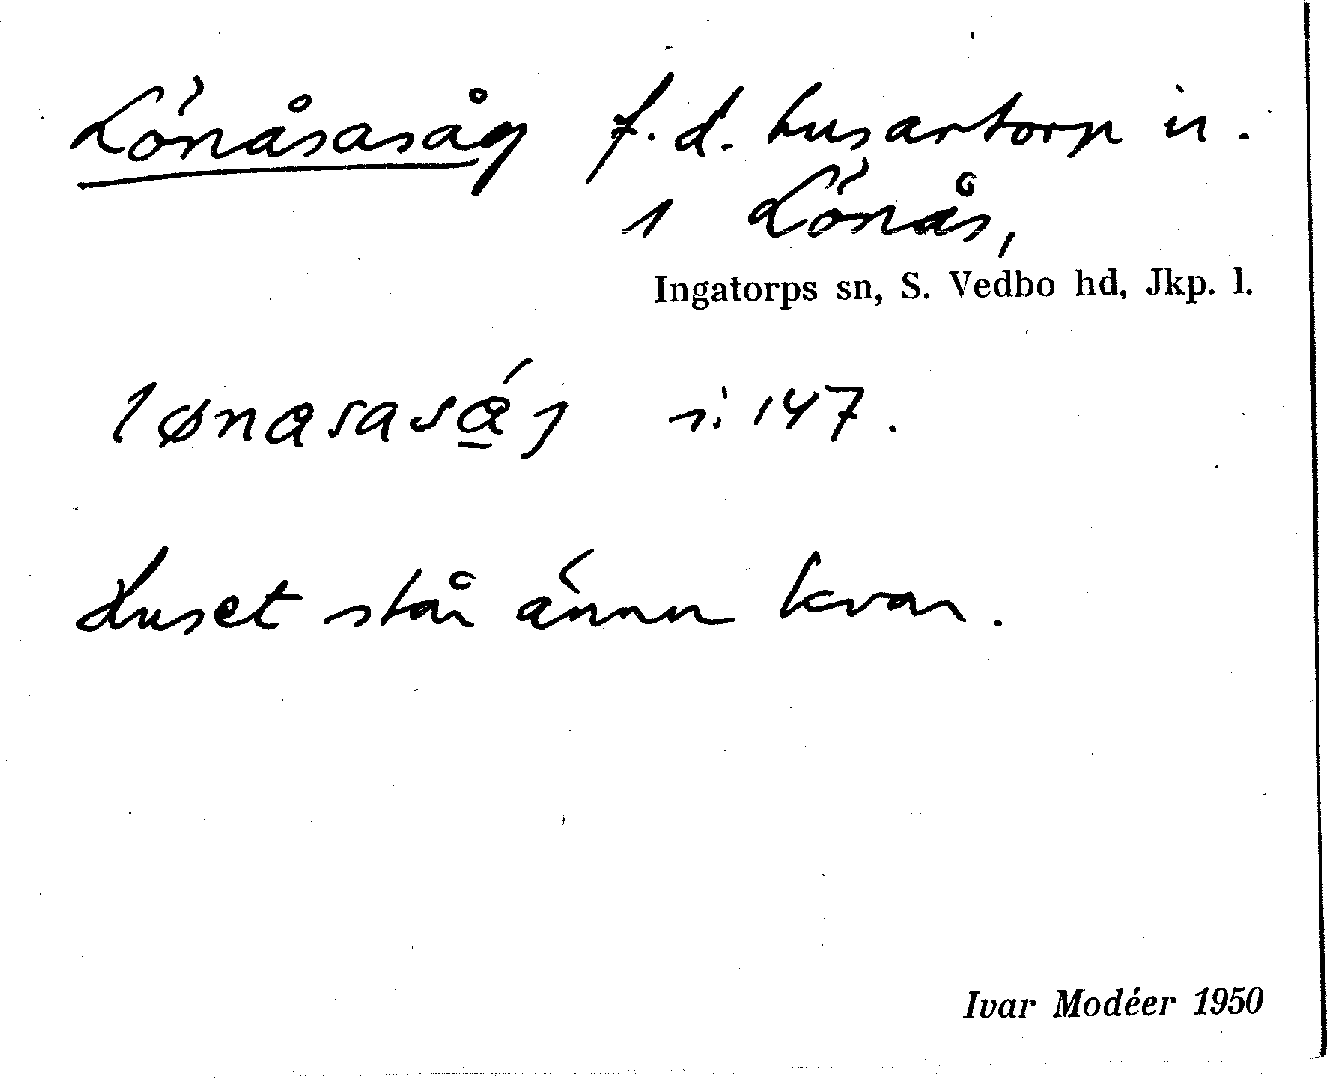 Lönåsasåg f. d. husartorp u.
1 Lönås,
Ingatorps sn, S. Vedbo hd, Jkp. l.
lønasasá̱j s: 147.
Huset står ännu kvar.
Ivar Modéer 1950